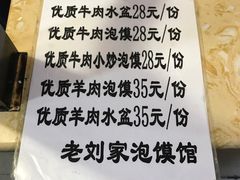 优质牛肉水盆28元/份
优质牛肉泡馍28元/份
优质牛肉小炒泡馍28元/份
优质羊肉泡馍35元/份
优质羊肉水盆35元/份
老刘家泡馍馆